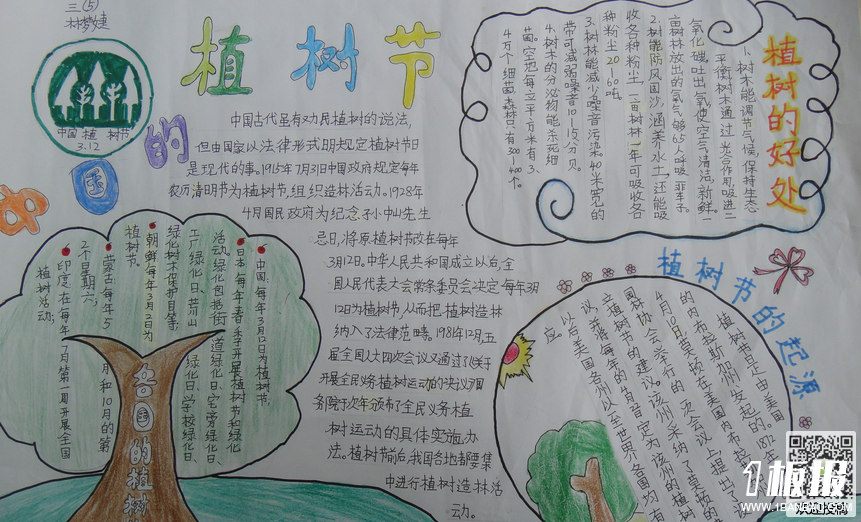 三(5)
中国 植 树节
3.12
植树节
中国的
中国古代虽有劝民植树的说法,
但由国家以法律形式明规定植树节日
是现代的事。1915年7月31日中国政府规定每年
农历清明节为植树节,组织造林活动。1928年
4月国民政府为纪念孙中山先生
忌日,将原植树节改在每年
3月12日。中华人民共和国成立以后,全
国人民代表大会常务委员会决定每年3月
12日为植树节,从而把植树造林
纳入了法律范畴。1981年12月,五
届全国人大四次会议又通过了《关于
开展全民义务植树运动的决议》国
务院于次年颁布了全民义务植
树运动的具体实施办
法。植树节前后,我国各地都要集
中进行植树造林活
动。
植树的好处
1、树木能调节气候,保持生态
平衡树木通过光合作用吸进二
氧化碳,吐出氧,使空气清洁、新鲜一
亩树林放出的氧气够65人呼吸一辈子。
2:树能防风固沙,涵养水土,还能吸
收各种粉尘一亩树林一年可吸收各
种粉尘20—60吨。
3、树林能减少噪音污染。40米宽的
带可减弱噪音10—15分贝。
4、树木的分泌物能杀死细
菌。空地每立平方米有3、
4万个细菌,森林只有300—400个。
各国的植树
中国:每年3月12日为植树节;
日本:每年春季开展植树节和绿化
活动。绿化包括街道绿化日、宅旁绿化日、
工厂绿化日、荒川绿化日、学校绿化日、
绿化树木保护日等;
朝鲜:每年3月2日为
植树节。
蒙古:每年5月和10月的第
2个星期六;
印度:在每年7月第一周开展全国
植树活动;
植树节的起源
植树节是由美国
的内布拉斯加州发起的。1872年
4月10日,莫顿在美国内布拉
树协会举行的一次会议上提出了
立植树节的建议。该州采纳了莫顿的
议,并将每年的
定为该州的植树
以后美国各州以至世界各国均有
应。
1板报
WWW.1BANBAO.COM
欢迎投稿